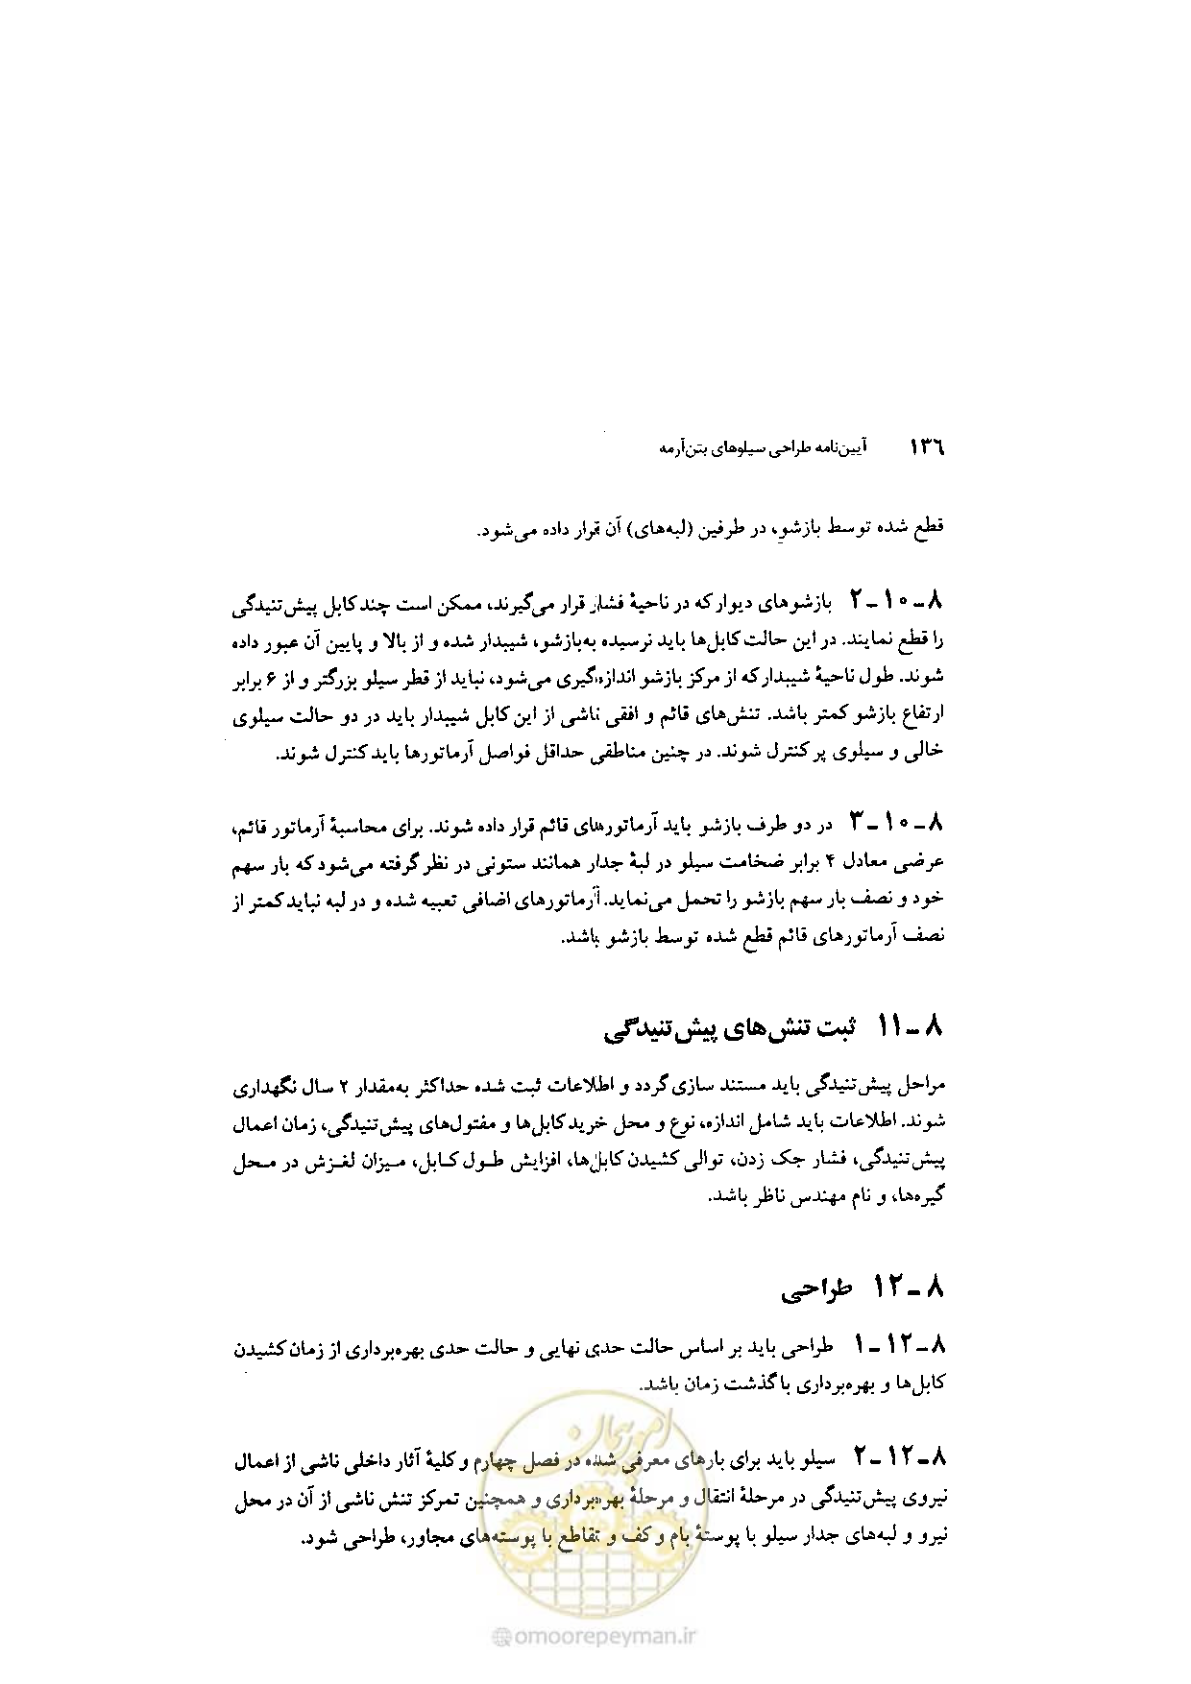 ۱۳۶ آیین‌نامه طراحی سیلوهای بتن‌آرمه
قطع شده توسط بازشو، در طرفین (لبه‌های) آن قرار داده می‌شود.
۸-۱۰-۲ بازشوهای دیوار که در ناحیهٔ فشار قرار می‌گیرند، ممکن است چند کابل پیش‌تنیدگی
را قطع نمایند. در این حالت کابل‌ها باید نرسیده به‌بازشو، شیبدار شده و از بالا و پایین آن عبور داده
شوند. طول ناحیهٔ شیبدار که از مرکز بازشو اندازه‌گیری می‌شود، نباید از قطر سیلو بزرگتر و از ۶ برابر
ارتفاع بازشو کمتر باشد. تنش‌های قائم و افقی ناشی از این کابل شیبدار باید در دو حالت سیلوی
خالی و سیلوی پر کنترل شوند. در چنین مناطقی حداقل فواصل آرماتورها باید کنترل شوند.
۸-۱۰-۳ در دو طرف بازشو باید آرماتورهای قائم قرار داده شوند. برای محاسبهٔ آرماتور قائم،
عرضی معادل ۴ برابر ضخامت سیلو در لبهٔ جدار همانند ستونی در نظر گرفته می‌شود که بار سهم
خود و نصف بار سهم بازشو را تحمل می‌نماید. آرماتورهای اضافی تعبیه شده و در لبه نباید کمتر از
نصف آرماتورهای قائم قطع شده توسط بازشو باشد.
۸-۱۱ ثبت تنش‌های پیش‌تنیدگی
مراحل پیش‌تنیدگی باید مستند سازی گردد و اطلاعات ثبت شده حداکثر به‌مقدار ۲ سال نگهداری
شوند. اطلاعات باید شامل اندازه، نوع و محل خرید کابل‌ها و مفتول‌های پیش‌تنیدگی، زمان اعمال
پیش‌تنیدگی، فشار جک زدن، توالی کشیدن کابل‌ها، افزایش طول کابل، میزان لغزش در محل
گیره‌ها، و نام مهندس ناظر باشد.
۸-۱۲ طراحی
۸-۱۲-۱ طراحی باید بر اساس حالت حدی نهایی و حالت حدی بهره‌برداری از زمان کشیدن
کابل‌ها و بهره‌برداری با گذشت زمان باشد.
۸-۱۲-۲ سیلو باید برای بارهای معرفی شده در فصل چهارم و کلیهٔ آثار داخلی ناشی از اعمال
نیروی پیش‌تنیدگی در مرحلهٔ انتقال و مرحلهٔ بهره‌برداری و همچنین تمرکز تنش ناشی از آن در محل
نیرو و لبه‌های جدار سیلو با پوستهٔ بام و کف و تقاطع با پوسته‌های مجاور، طراحی شود.
امور پیمان
@omoorepeyman.ir